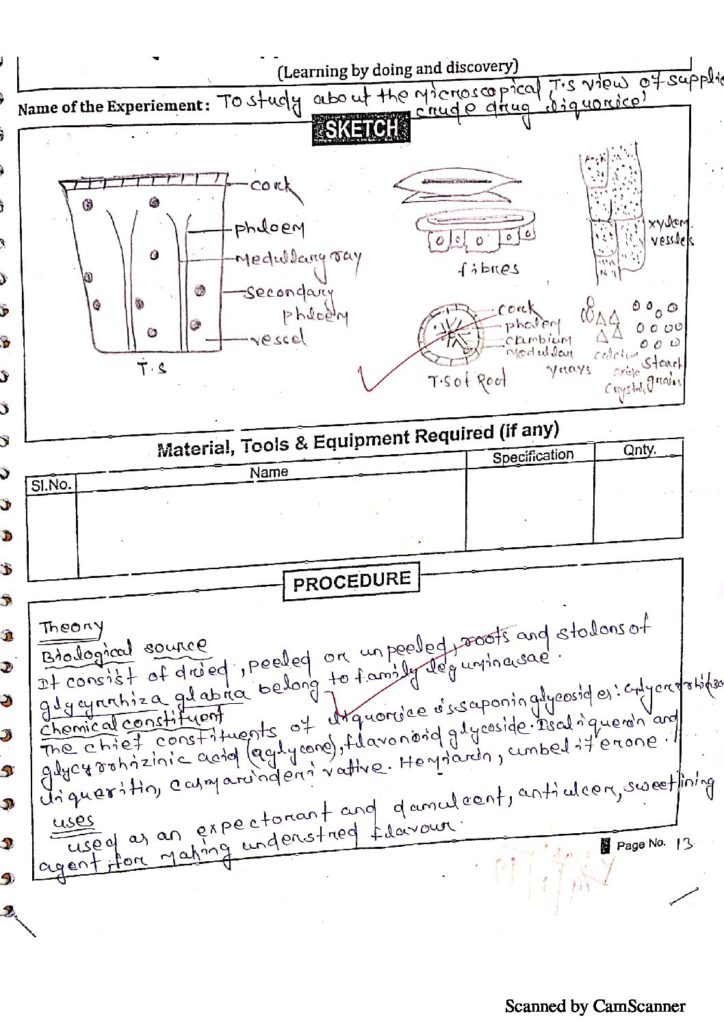 (Learning by doing and discovery)
Name of the Experiement: To study about the Microscopical T.S view of supplie
crude drug liquorice'
SKETCH
cork
phloem
Medullary ray
secondary
phloem
vessel
T.S
fibres
xylem
vessels
cork
phloem
cambium
medullar
yrays
T.S of Root
calcium
Crystals
Starch
grains
Material, Tools & Equipment Required (if any)
Sl.No. Name Specification Qnty.
PROCEDURE
Theory
Biological source
It consist of dried, peeled or unpeeled, roots and stolons of
glycyrrhiza glabra belong to family leguminasae.
Chemical constituent
The chief constituents of liquorice is saponin glycosides:
glycyrrhizinic acid (aglycone), flavonoid glycoside. Isoliquerin and
liqueritin, derivative. Herniarin, umbeliferone.
uses
used as an expectorant and damulcent, antiulcer, sweetining
agent, for making understred flavour.
Page No. 13
Scanned by CamScanner